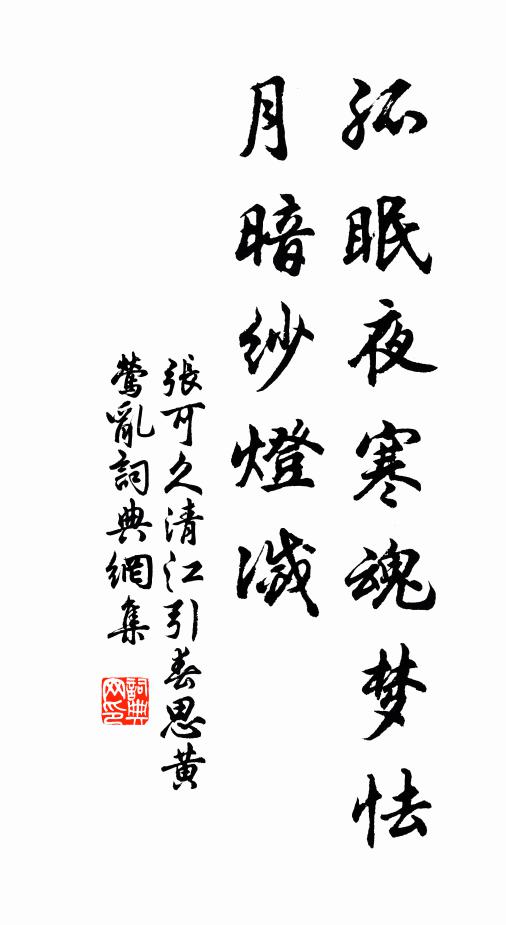 孤眠夜寒魂梦怯
月暗紗燈滅
張可久清江引春思黄
鶯亂詞典網集
詞典
网印